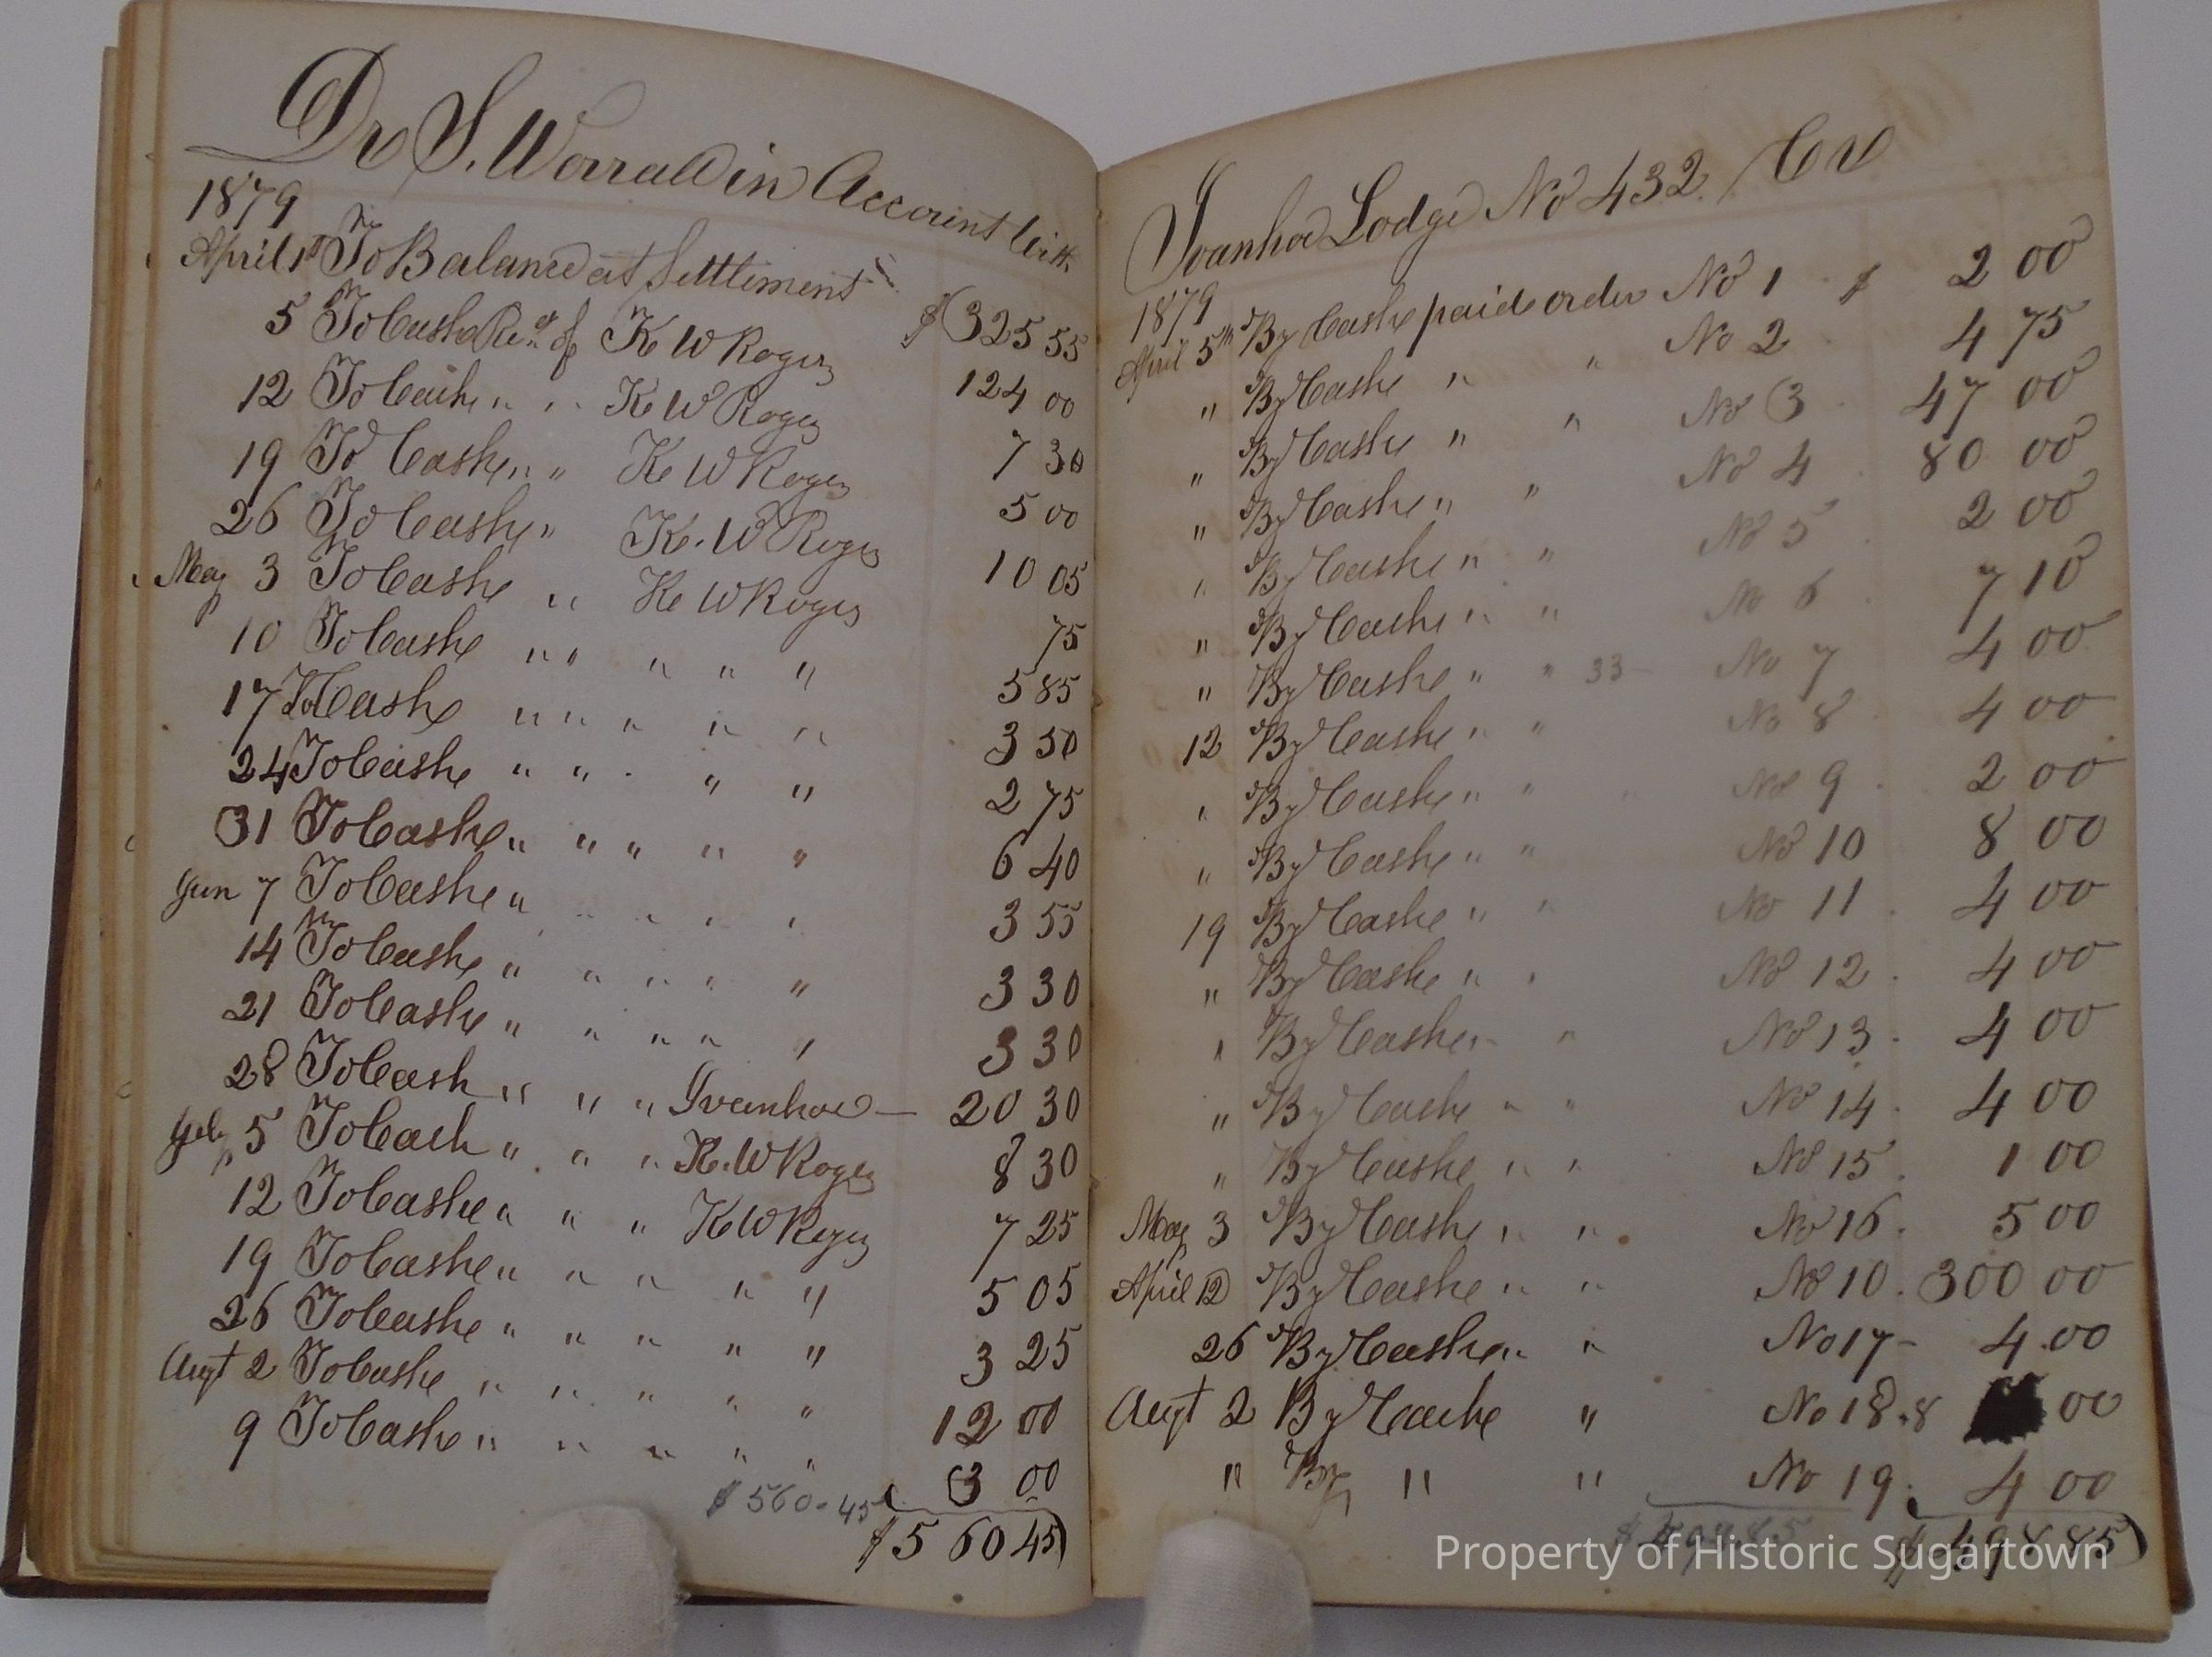 Dr S. Worrall in Account With
1879
April 1st To Balance at Settlement $325 55
5 To Cash Rec. of K W Rogers 124 00
12 To Cash " " K W Rogers 7 30
19 To Cash " " K W Rogers 5 00
26 To Cash " K. W Rogers 10 05
May 3 To Cash " K W Rogers 75
10 To Cash " " " " " 5 85
17 To Cash " " " " " 3 50
24 To Cash " " " " 2 75
31 To Cash " " " " " 6 40
Jun 7 To Cash " " " " " 3 55
14 To Cash " " " " " 3 30
21 To Cash " " " " " 3 30
28 To Cash " " " Ivanhoe — 20 30
July 5 To Cash " " " K. W Rogers 8 30
12 To Cash " " " K W Rogers 7 25
19 To Cash " " " " " 5 05
26 To Cash " " " " " 3 25
Augt 2 To Cash " " " " " 12 00
9 To Cash " " " " " 3 00
$560.45
$560 45
Ivanhoe Lodge No 432. Cr
1879
April 5th By Cash paid order No 1 $ 2 00
" By Cash " " No 2 4 75
" By Cash " " No 3 47 00
" By Cash " " No 4 80 00
" By Cash " " No 5 2 00
" By Cash " " No 6 7 10
" By Cash " " 33 — No 7 4 00
12 By Cash " " No 8 4 00
" By Cash " " No 9 2 00
" By Cash " " No 10 8 00
19 By Cash " " No 11 4 00
" By Cash " " No 12 4 00
" By Cash " " No 13 4 00
" By Cash " " No 14 4 00
" By Cash " " No 15 1 00
May 3 By Cash " " No 16 5 00
April 12 By Cash " " No 10 300 00
26 By Cash " " No 17 - 4.00
Augt 2 By Cash " No 18.8 00
" By " " No 19. 4 00
$498 85
Property of Historic Sugartown